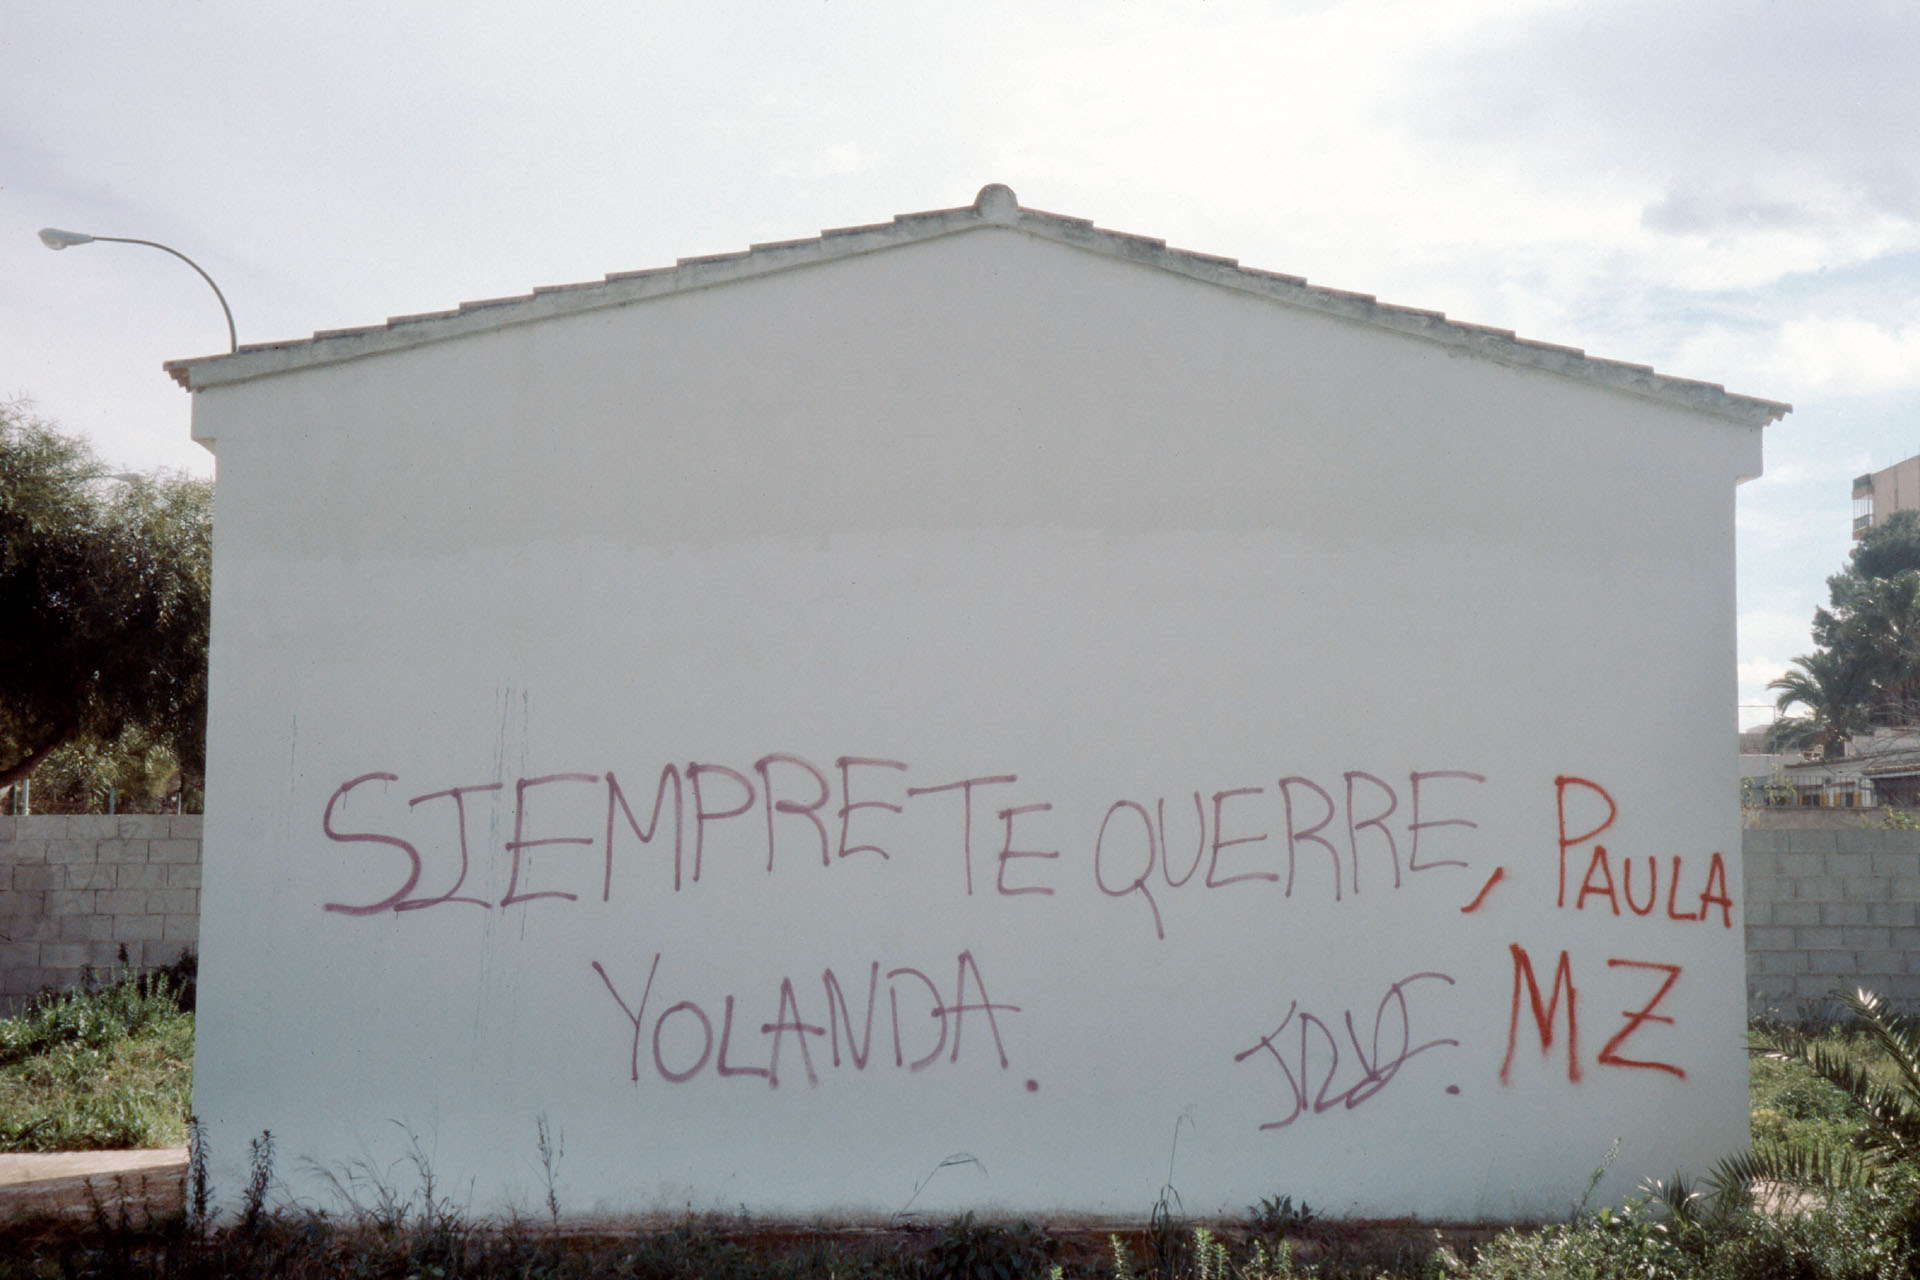 SIEMPRE TE QUERRE, PAULA
YOLANDA. MZ